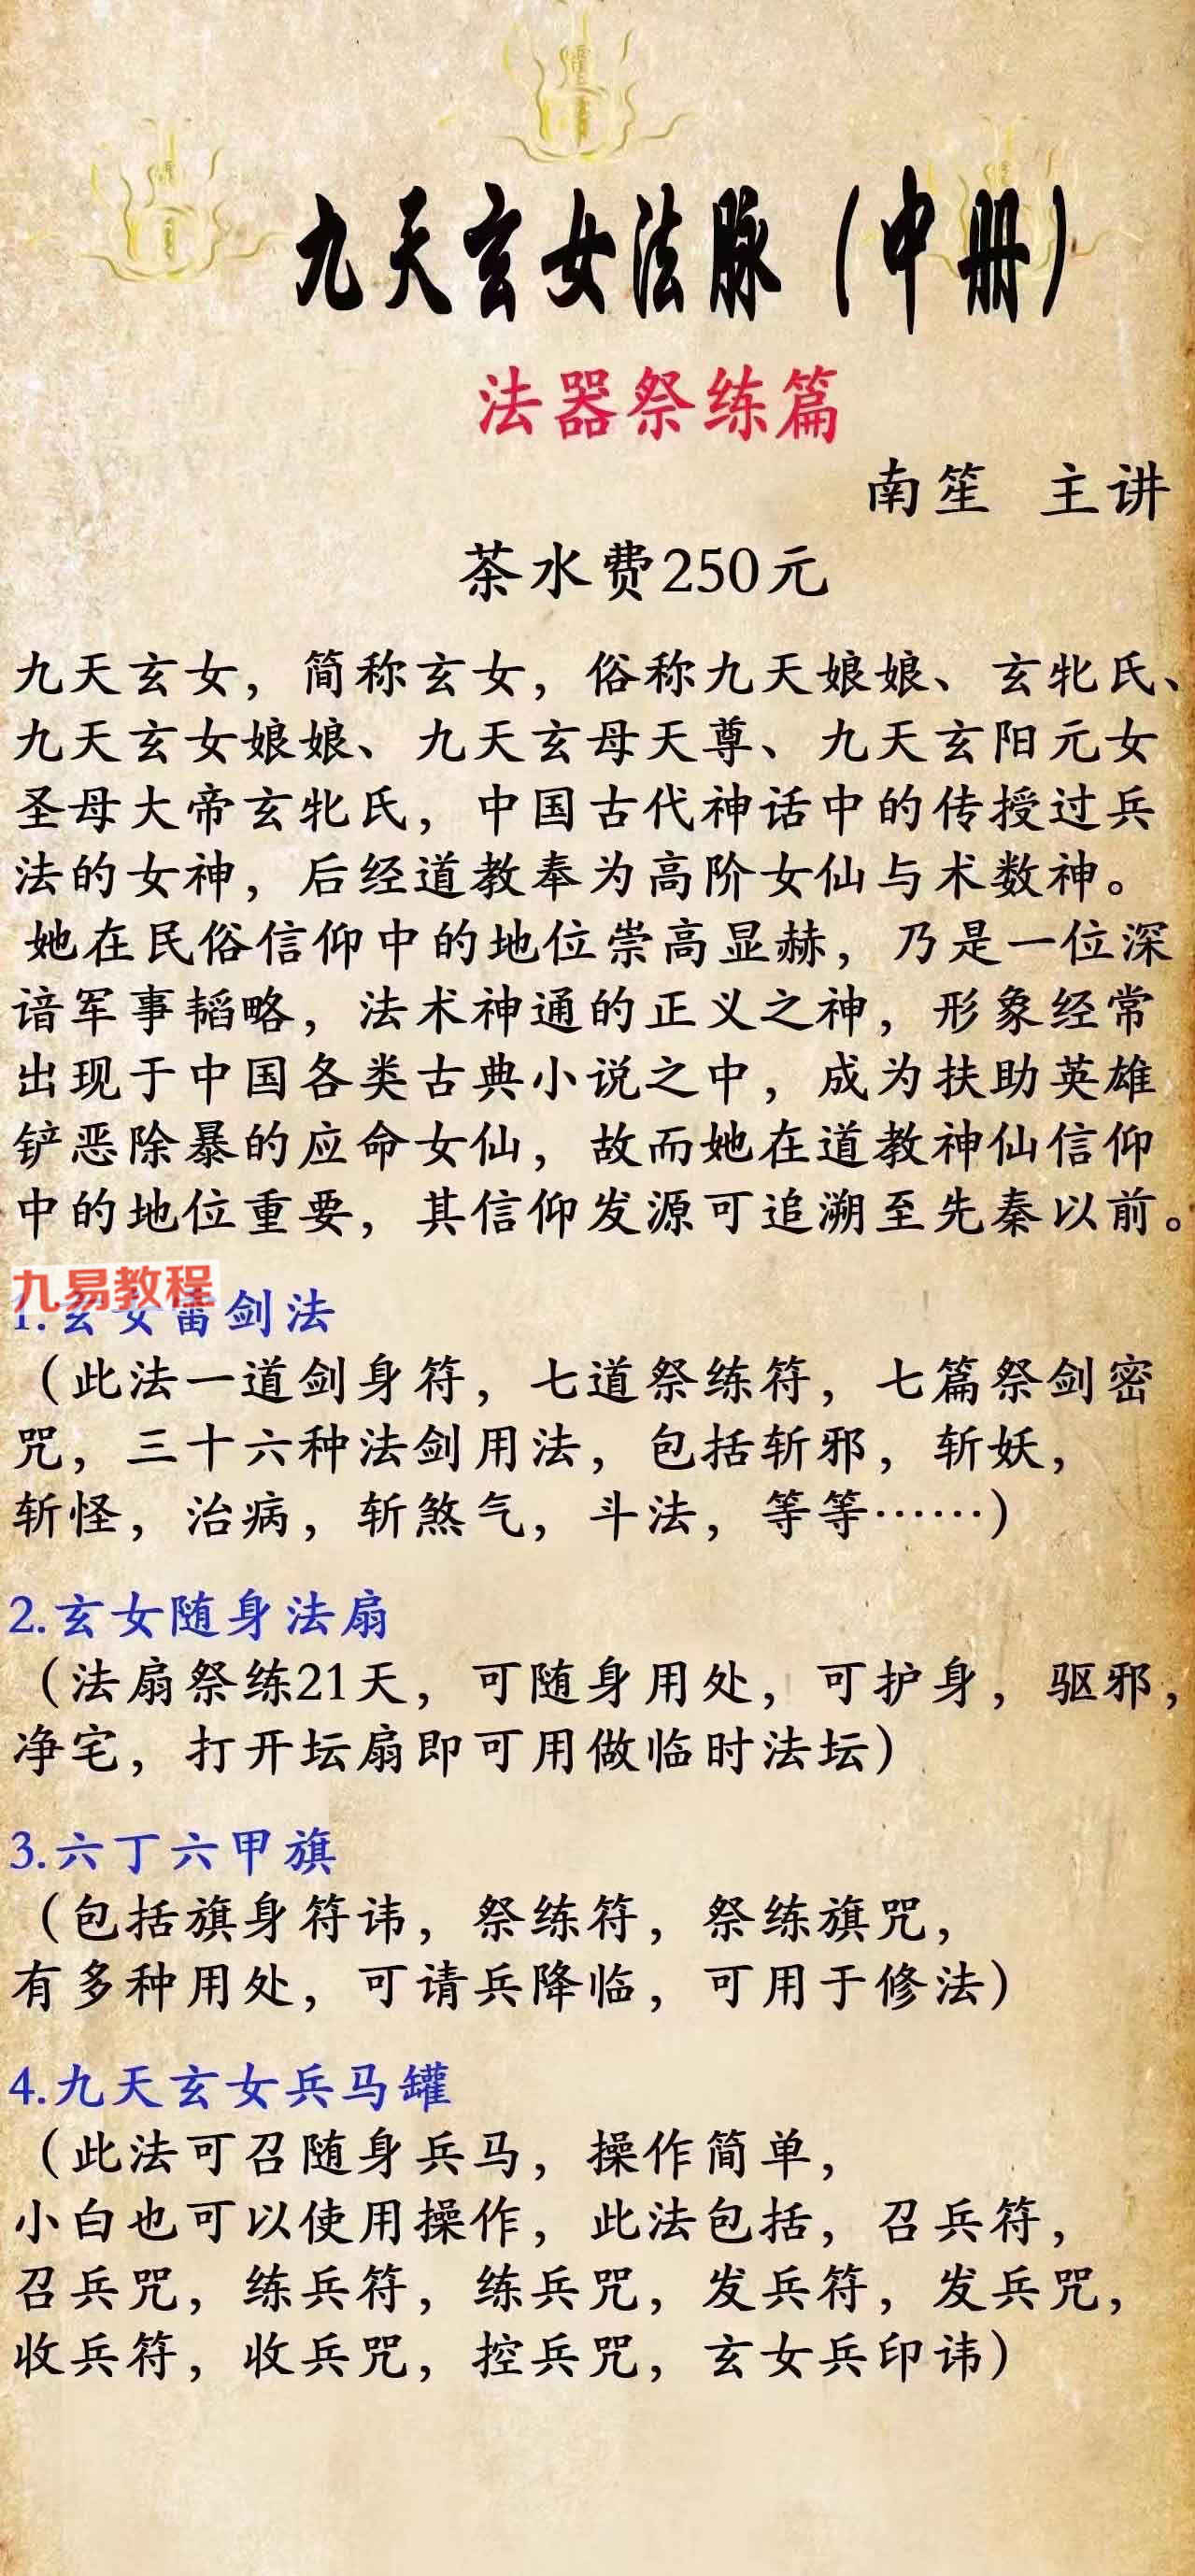 九天玄女法脉（中册）
法器祭练篇
南笙 主讲
茶水费250元
九天玄女，简称玄女，俗称九天娘娘、玄牝氏、
九天玄女娘娘、九天玄母天尊、九天玄阳元女
圣母大帝玄牝氏，中国古代神话中的传授过兵
法的女神，后经道教奉为高阶女仙与术数神。
她在民俗信仰中的地位崇高显赫，乃是一位深
谙军事韬略，法术神通的正义之神，形象经常
出现于中国各类古典小说之中，成为扶助英雄
铲恶除暴的应命女仙，故而她在道教神仙信仰
中的地位重要，其信仰发源可追溯至先秦以前。
九易教程
1.玄女雷剑法
（此法一道剑身符，七道祭练符，七篇祭剑密
咒，三十六种法剑用法，包括斩邪，斩妖，
斩怪，治病，斩煞气，斗法，等等……）
2.玄女随身法扇
（法扇祭练21天，可随身用处，可护身，驱邪，
净宅，打开坛扇即可用做临时法坛）
3.六丁六甲旗
（包括旗身符讳，祭练符，祭练旗咒，
有多种用处，可请兵降临，可用于修法）
4.九天玄女兵马罐
（此法可召随身兵马，操作简单，
小白也可以使用操作，此法包括，召兵符，
召兵咒，练兵符，练兵咒，发兵符，发兵咒，
收兵符，收兵咒，控兵咒，玄女兵印讳）